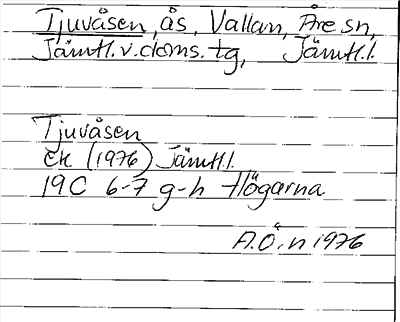 Tjuvåsen, ås, Vallan, Åre sn,
Jämtl.v.doms.tg, Jämtl.l.
Tjuvåsen
EK (1976) Jämtl.l.
19C 6-7 g-h Högarna
A.Ö.n 1976